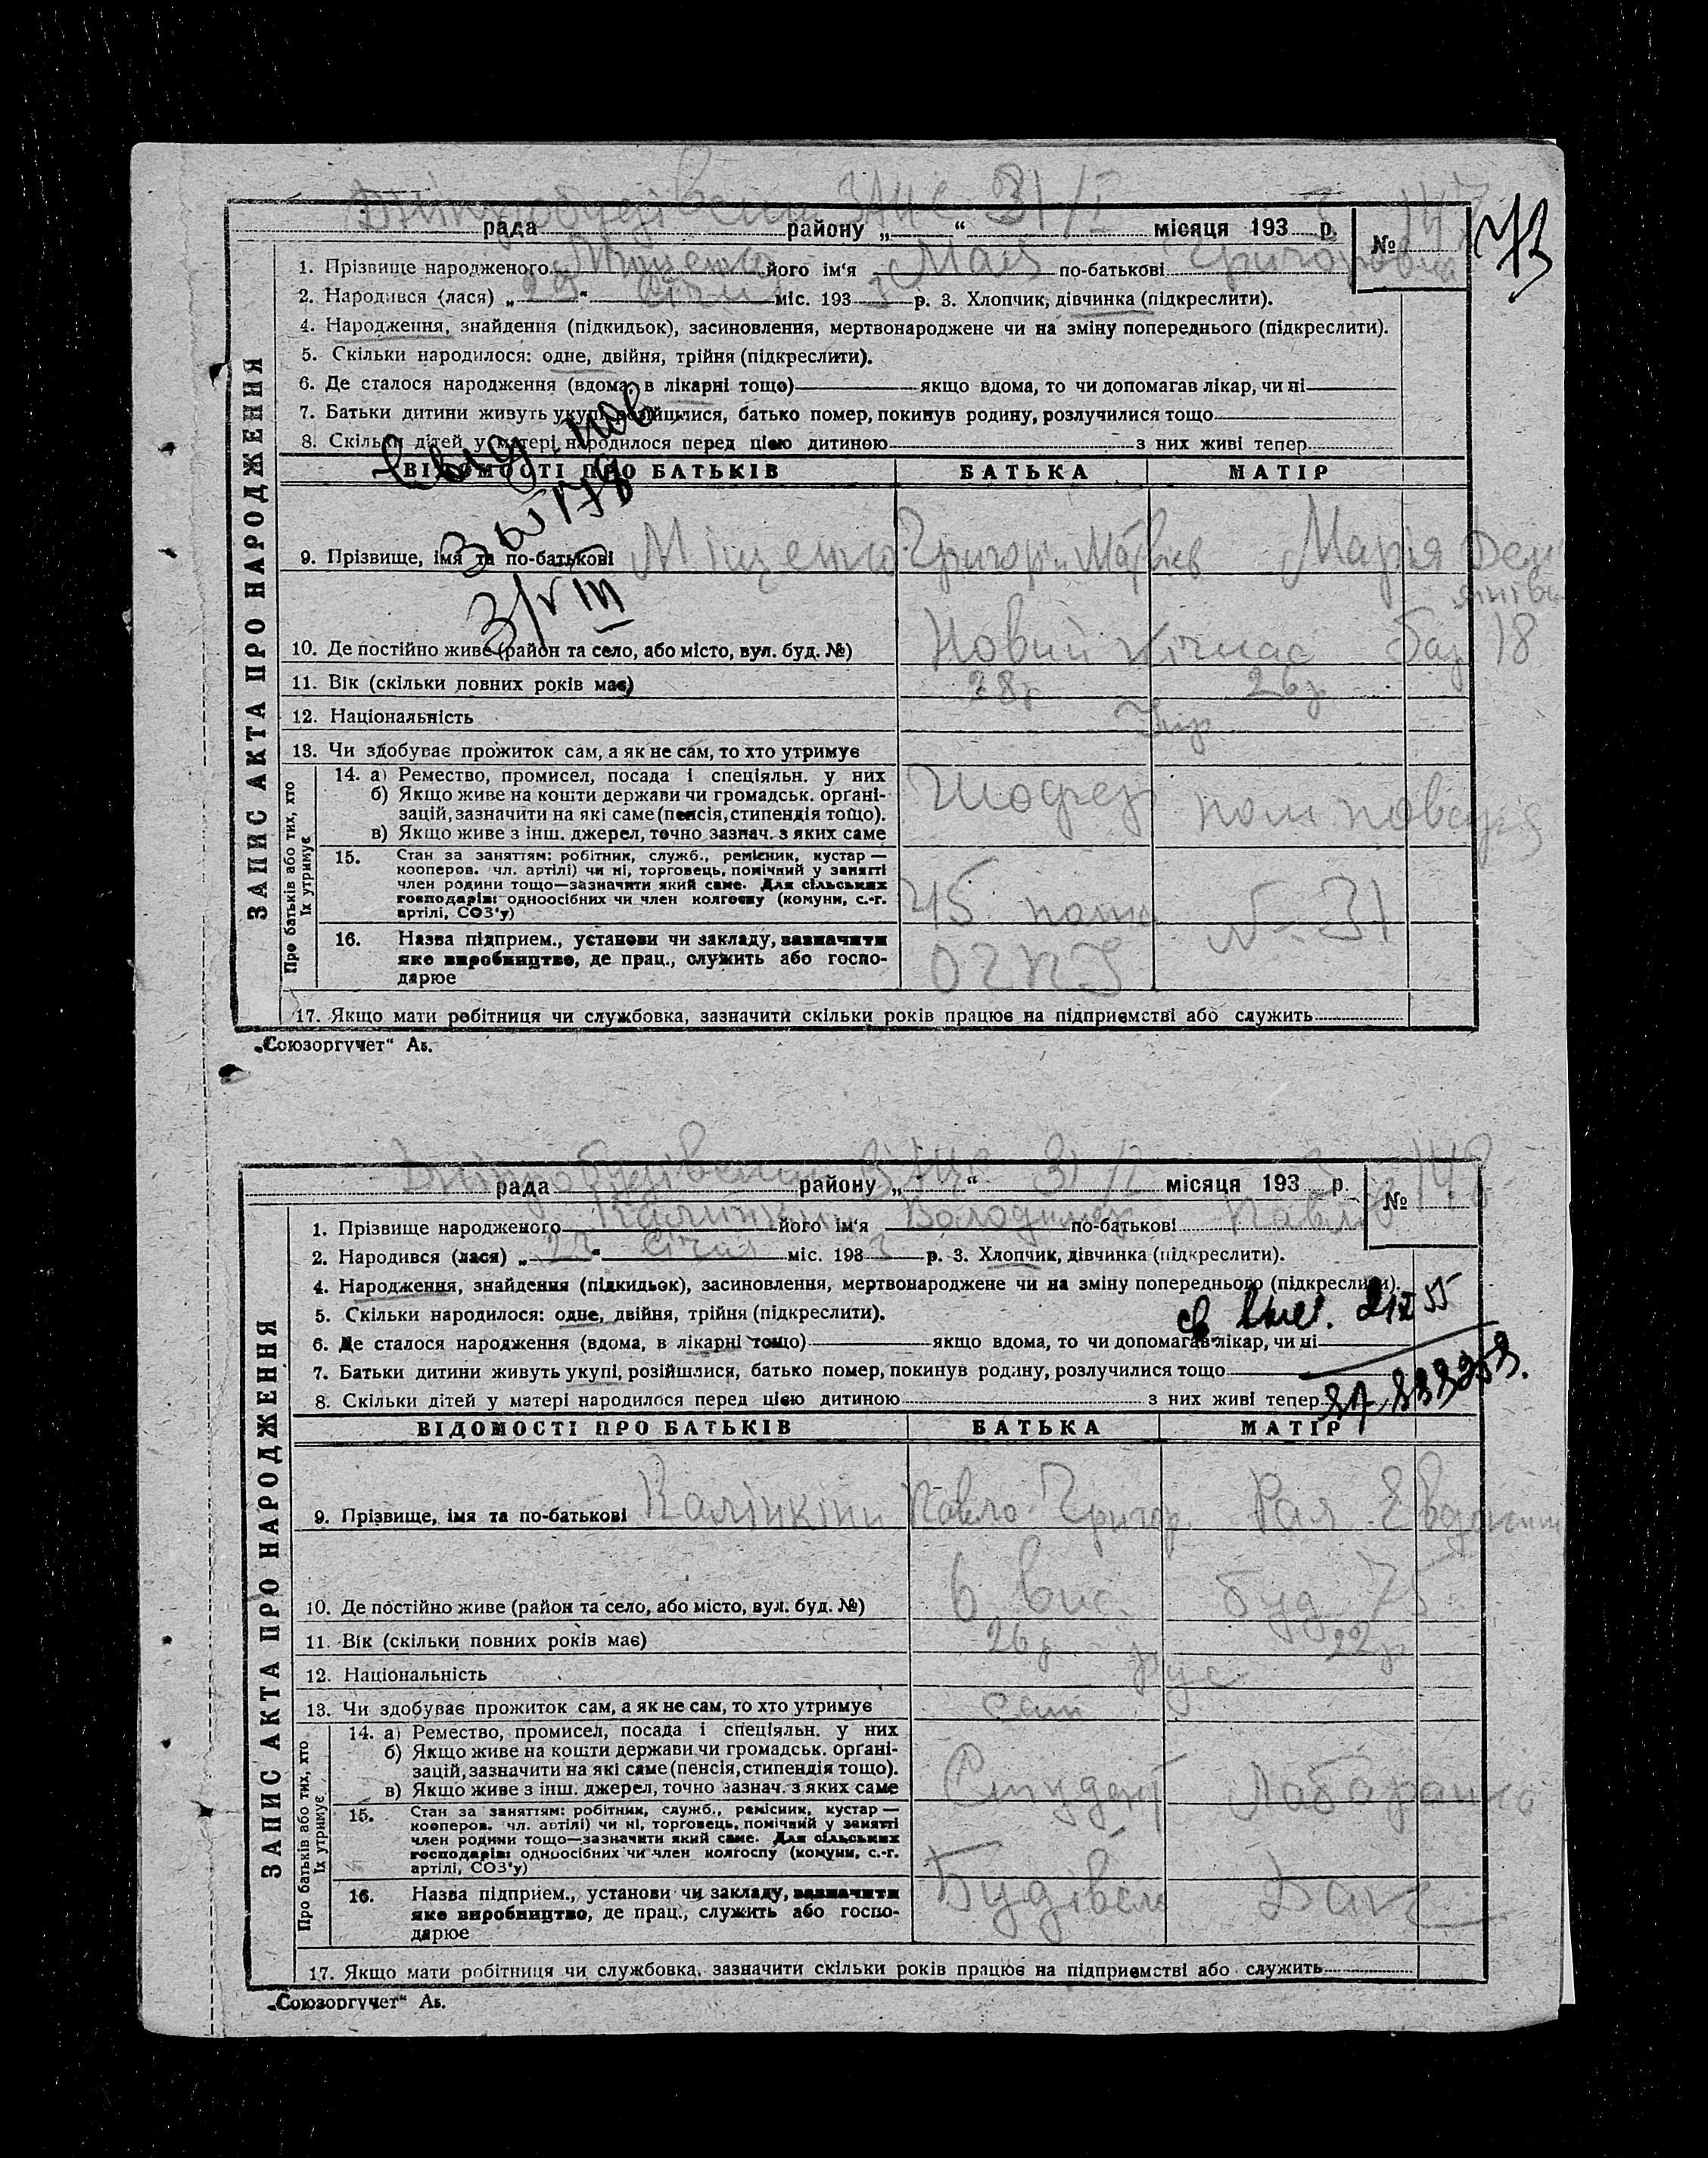 73
Дніпробудівськ ЗАГС 31/I 3 147
рада району „ “ місяця 193 р. №
1. Прізвище народженого Міщенко його ім'я Мая по-батькові Григоровна
2. Народився (лася) „ 29 “ січня міс. 193 3 р. 3. Хлопчик, дівчинка (підкреслити).
4. Народження, знайдення (підкидьок), засиновлення, мертвонароджене чи на зміну попереднього (підкреслити).
5. Скільки народилося: одне, двійня, трійня (підкреслити).
6. Де сталося народження (вдома, в лікарні тощо) якщо вдома, то чи допомагав лікар, чи ні
7. Батьки дитини живуть укупі, розійшлися, батько помер, покинув родину, розлучилися тощо
8. Скільки дітей у матері народилося перед цією дитиною з них живі тепер
ВІДОМОСТІ ПРО БАТЬКІВ БАТЬКА МАТІР
9. Прізвище, імя та по-батькові Міщенко Григор. Матвієв Марія
10. Де постійно живе (район та село, або місто, вул. буд. №) Новий Кічкас 18
11. Вік (скільки повних років має) 28р 26р
12. Національність Укр
13. Чи здобуває прожиток сам, а як не сам, то хто утримує
14. а) Ремество, промисел, посада і спеціяльн. у них Шофер
б) Якщо живе на кошти держави чи громадськ. орґані-
зацій, зазначити на які саме (пенсія, стипендія тощо).
в) Якщо живе з інш. джерел, точно зазнач. з яких саме
15. Стан за заняттям: робітник, служб., ремісник, кустар —
кооперов. чл. артілі) чи ні, торговець, помічний у занятті
член родини тощо—зазначити який саме. Для сільських
господарів: одноосібних чи член колгоспу (комуни, с.-г.
артілі, СОЗ'у)
16. Назва підприєм., установи чи закладу, зазначити № 31
яке виробництво, де прац., служить або госпо-
дарює
17. Якщо мати робітниця чи службовка, зазначити скільки років працює на підприємстві або служить
ЗАПИС АКТА ПРО НАРОДЖЕННЯ
Про батьків або тих, хто їх утримує
„Союзоргучет“ Аб.
Дніпробудівськ ЗАГС 31/I 3 148
рада району „ “ місяця 193 р. №
1. Прізвище народженого Калінкін його ім'я Володимир по-батькові Павлов
2. Народився (лася) „ 23 “ січня міс. 193 3 р. 3. Хлопчик, дівчинка (підкреслити).
4. Народження, знайдення (підкидьок), засиновлення, мертвонароджене чи на зміну попереднього (підкреслити).
5. Скільки народилося: одне, двійня, трійня (підкреслити).
6. Де сталося народження (вдома, в лікарні тощо) якщо вдома, то чи допомагав лікар, чи ні
7. Батьки дитини живуть укупі, розійшлися, батько помер, покинув родину, розлучилися тощо
8. Скільки дітей у матері народилося перед цією дитиною з них живі тепер
ВІДОМОСТІ ПРО БАТЬКІВ БАТЬКА МАТІР
9. Прізвище, імя та по-батькові Калінкіни Павло Григор. Рая
10. Де постійно живе (район та село, або місто, вул. буд. №) 6 вис. буд 75
11. Вік (скільки повних років має) 26р 22р
12. Національність рус
13. Чи здобуває прожиток сам, а як не сам, то хто утримує сам
14. а) Ремество, промисел, посада і спеціяльн. у них Студент
б) Якщо живе на кошти держави чи громадськ. орґані-
зацій, зазначити на які саме (пенсія, стипендія тощо).
в) Якщо живе з інш. джерел, точно зазнач. з яких саме
15. Стан за заняттям: робітник, служб., ремісник, кустар —
кооперов. чл. артілі) чи ні, торговець, помічний у занятті
член родини тощо—зазначити який саме. Для сільських
господарів: одноосібних чи член колгоспу (комуни, с.-г.
артілі, СОЗ'у)
16. Назва підприєм., установи чи закладу, зазначити Будівель
яке виробництво, де прац., служить або госпо-
дарює
17. Якщо мати робітниця чи службовка, зазначити скільки років працює на підприємстві або служить
ЗАПИС АКТА ПРО НАРОДЖЕННЯ
Про батьків або тих, хто їх утримує
„Союзоргучет“ Аб.